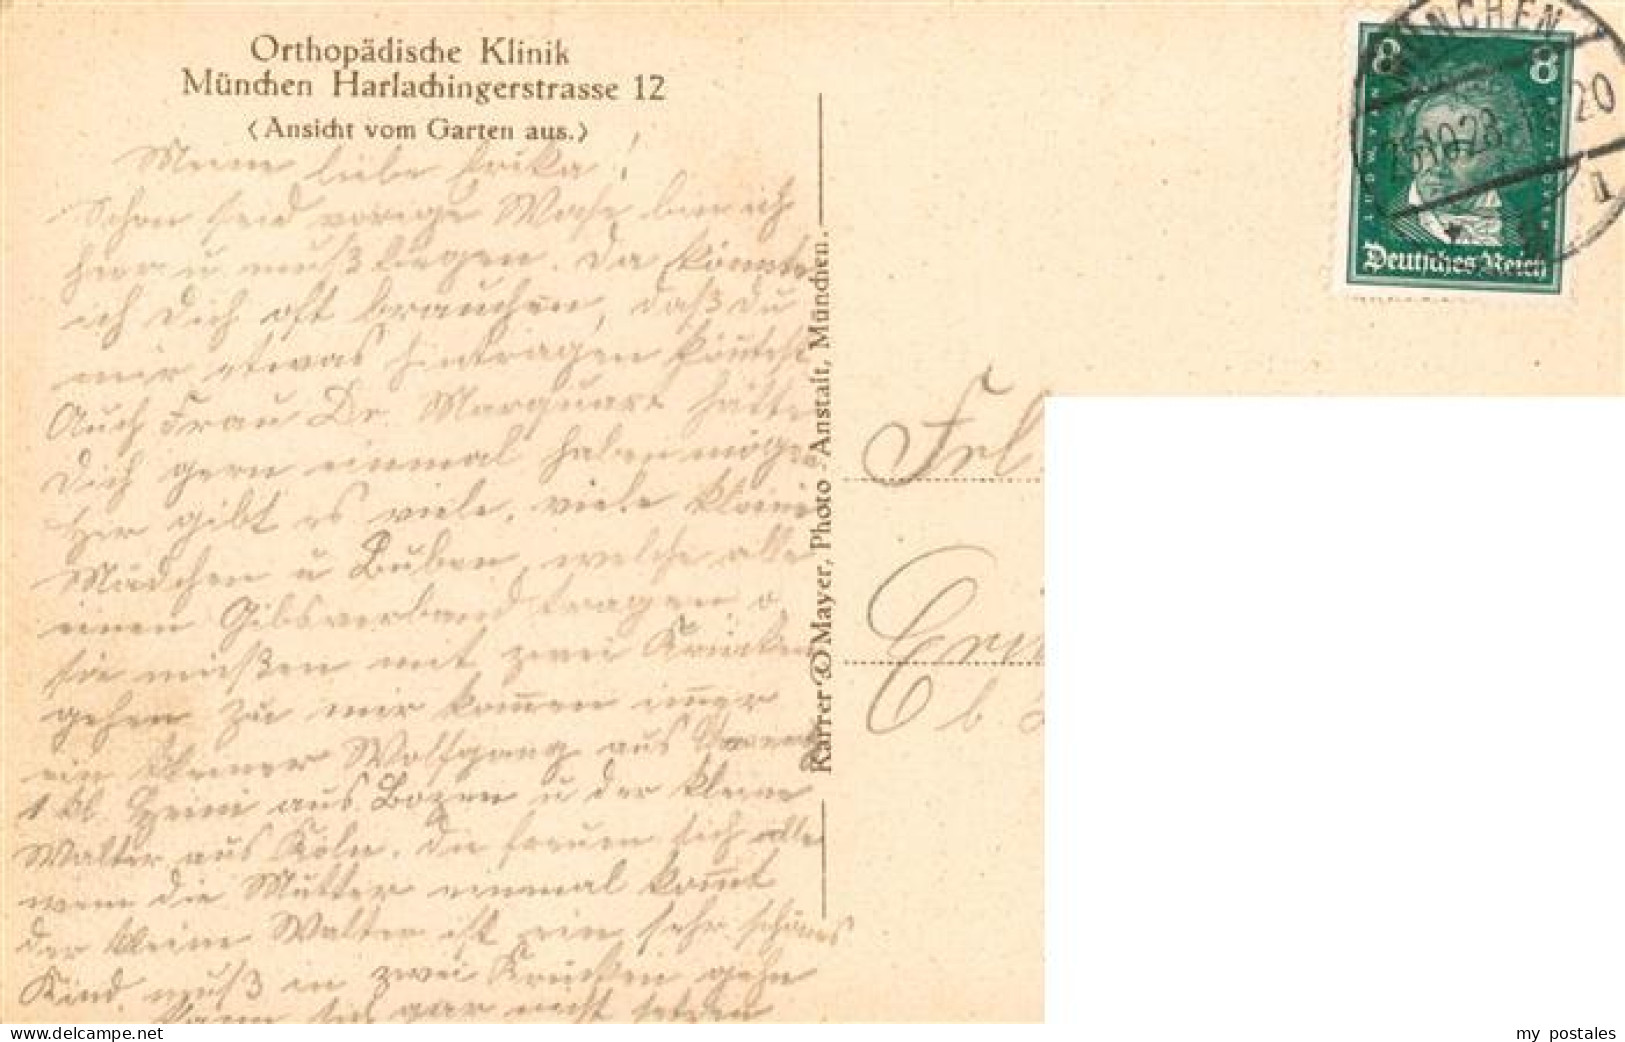 Orthopädische Klinik
München Harlachingerstrasse 12
(Ansicht vom Garten aus.)
Meine liebe Erika!
Schon seid vorige Woche bin ich
hier u. muß liegen. Da könnte
ich Dich oft brauchen, daß Du
mir etwas hintragen könntest
Auch Frau Dr. Marquart hätte
Dich gern einmal haben mögen
Hier gibt es viele, viele kleine
Mädchen u Buben, welche alle
einen Gibsverband tragen o.
sie müßen mit zwei Krücken
gehen Zu mir kom̅en im̅er
ein kleiner Wolfgang aus
1 kl. Heini aus Bozen u der kleine
Walter aus Köln. Die freuen sich alle
wenn die Mutter einmal kom̅t
der kleine Walter ist ein sehr schönes
Kind, muß in zwei Krücken gehn
kann sich gar nicht setzen
Karrer & Mayer, Photo-Anstalt, München.
Frl.
MÜNCHEN
25.10.28
20
8 8
LUDW. VAN BEETHOVEN
Deutsches Reich
my postales
www.delcampe.net